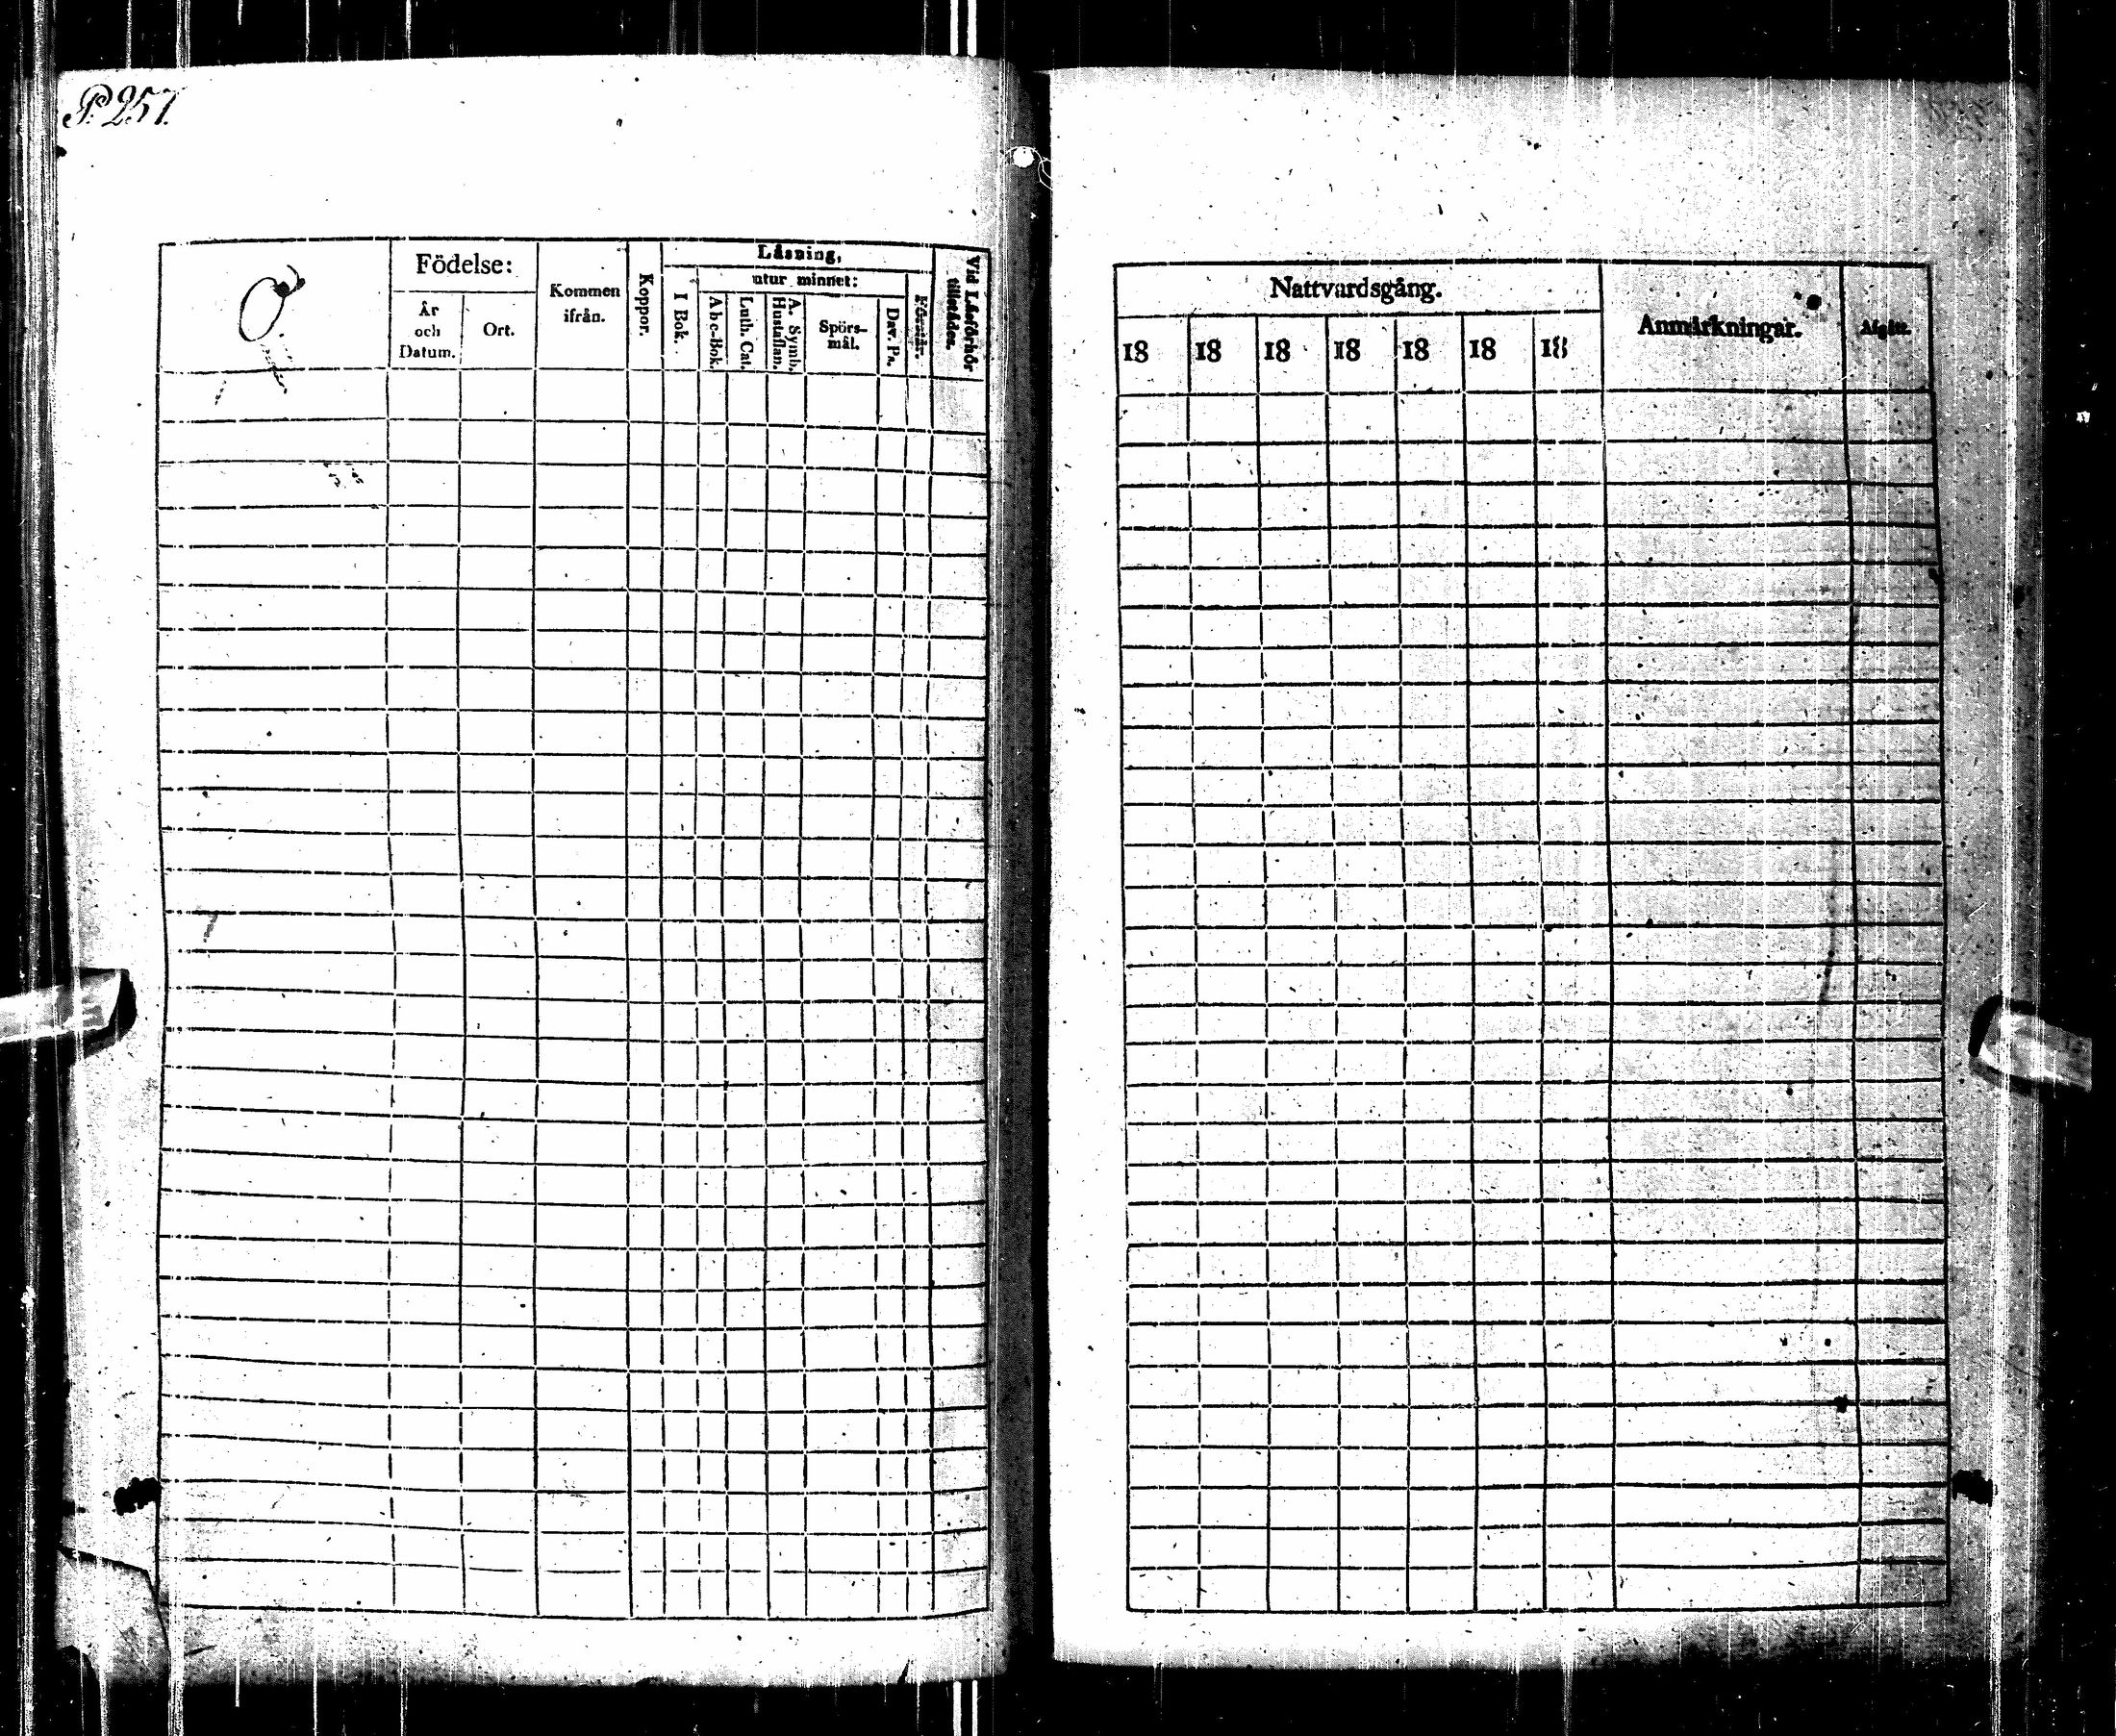 P. 257.
Födelse:
År och Datum.
Ort.
Kommen ifrån.
Koppor.
Läsning,
utur minnet:
I Bok.
Abc-Bok.
Luth. Cat.
A. Symb. Hustaflan.
Spörs-
mål.
Dav. Ps.
Förstår.
Vid Läsförhör
tillstädes.
Nattvardsgång.
18 18 18 18 18 18 18
Anmärkningar.
Afgått.